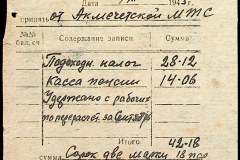 194 3 г.
Принять от Акмечетской МТС
№№ бал. сч. Содержание записи Сумма
Подоходн. налог 28-12
Касса пенсии 14-06
Удержано с рабочих
по перерасчет за Сентябрь
Итого 42-18
Сумма Сорок две марки 18 пф